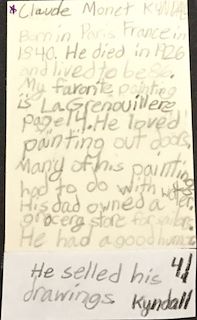 * Claude Monet
Born in Paris France in
1840. He died in 1926
and lived to be 86.
My favorite painting
is La Grenouillere
page 14. He loved
painting out doors.
Many of his painting
had to do with water.
His dad owned a
grocery store for sailors.
He had a good humor
He selled his 41
drawings Kyndall